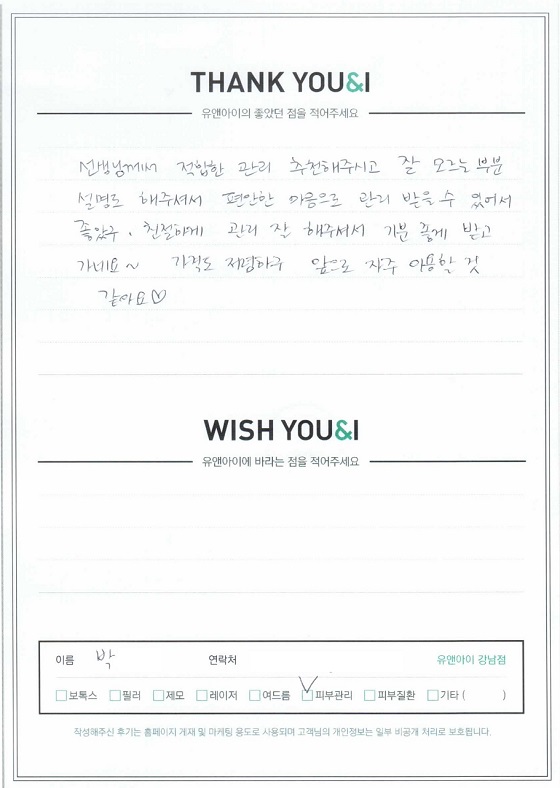 THANK YOU&I
유앤아이의 좋았던 점을 적어주세요
선생님께서 적합한 관리 추천해주시고 잘 모르는 부분
설명도 해주셔서 편안한 마음으로 관리 받을 수 있어서
좋았구, 친절하게 관리 잘 해주셔서 기분 좋게 받고
가네요~ 가격도 저렴하구 앞으로 자주 이용할 것
같아요♡
WISH YOU&I
유앤아이에 바라는 점을 적어주세요
이름 박 연락처 유앤아이 강남점
보톡스 필러 제모 레이저 여드름 피부관리 피부질환 기타 ( )
작성해주신 후기는 홈페이지 게재 및 마케팅 용도로 사용되며 고객님의 개인정보는 일부 비공개 처리로 보호됩니다.